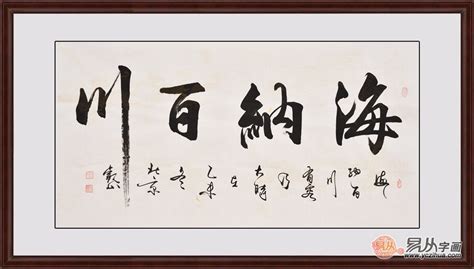 海納百川
海納百川有容乃大時在乙未冬北京
易从
易从字画
www.yczihua.com